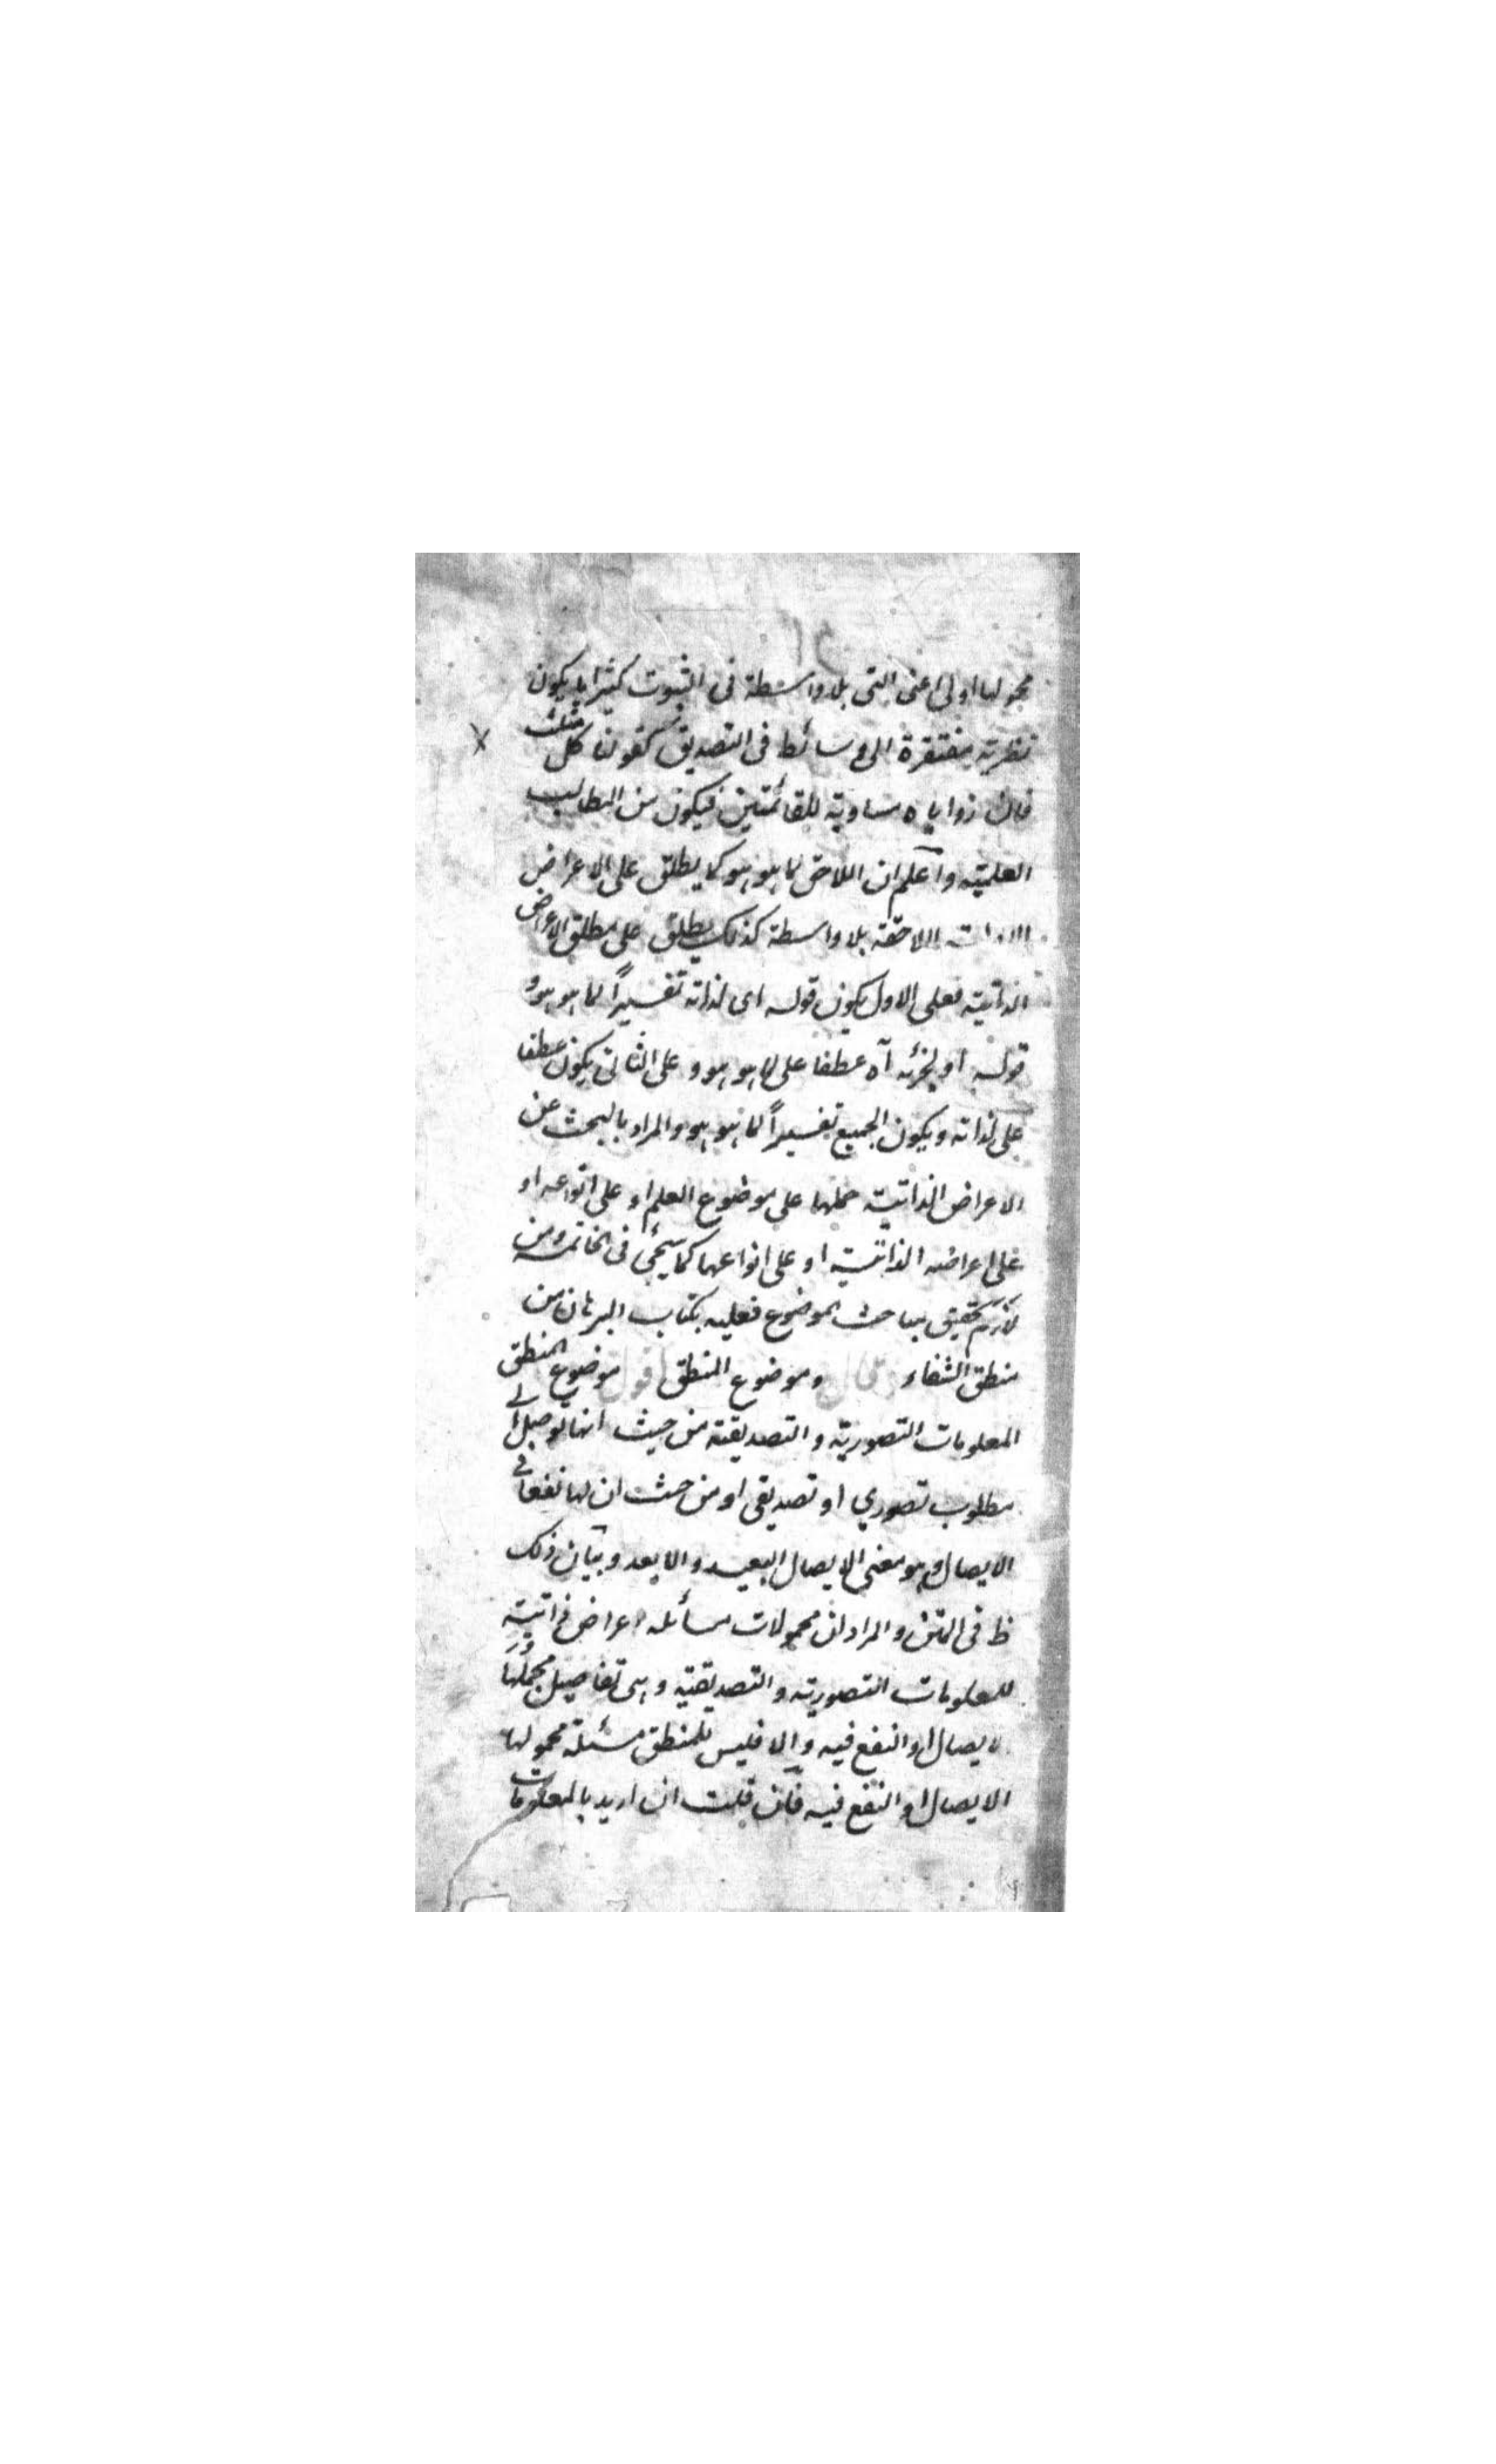 محمولها اولى اعنى التى بلا واسطة فى الثبوت كثيرا ما يكون
نظرية مفتقرة الى وسائط فى التصديق كقولنا كل مثلث
فان زواياه مساوية للقائمتين فيكون من المطالب
العلمية واعلم ان اللاحق لما هو هو كما يطلق على الاعراض
اللاحقة بلا واسطة كذلك يطلق على مطلق الاعراض
الذاتية فعلى الاول يكون قوله اى لذاته تفسيرًا لما هو هو و
قوله او لجزئه آه عطفا على لما هو هو و على الثانى يكون عطفا
على لذاته ويكون الجميع تفسيرًا لما هو هو والمراد بالبحث عن
الاعراض الذاتية حملها على موضوع العلم او على انواعه او
على اعراضه الذاتية او على انواعها كما سيجئ فى الخاتمة ومن
تحقيق مباحث الموضوع فعليه بكتاب البرهان من
منطق الشفاء قال وموضوع المنطق اقول موضوع المنطق
المعلومات التصورية والتصديقية من حيث انها توصل الى
مطلوب تصوري او تصديقى او من حيث ان لها نفعا فى
الايصال وهو معنى الايصال البعيد والابعد وبيان ذلك
ظ فى المتن والمراد ان محمولات مسائله اعراض ذاتية
للمعلومات التصورية والتصديقية وهى تفاصيل مجملها
الايصال او النفع فيه والا فليس للمنطق مسئلة محمولها
الايصال او النفع فيه فان قلت ان اريد بالمعلومات